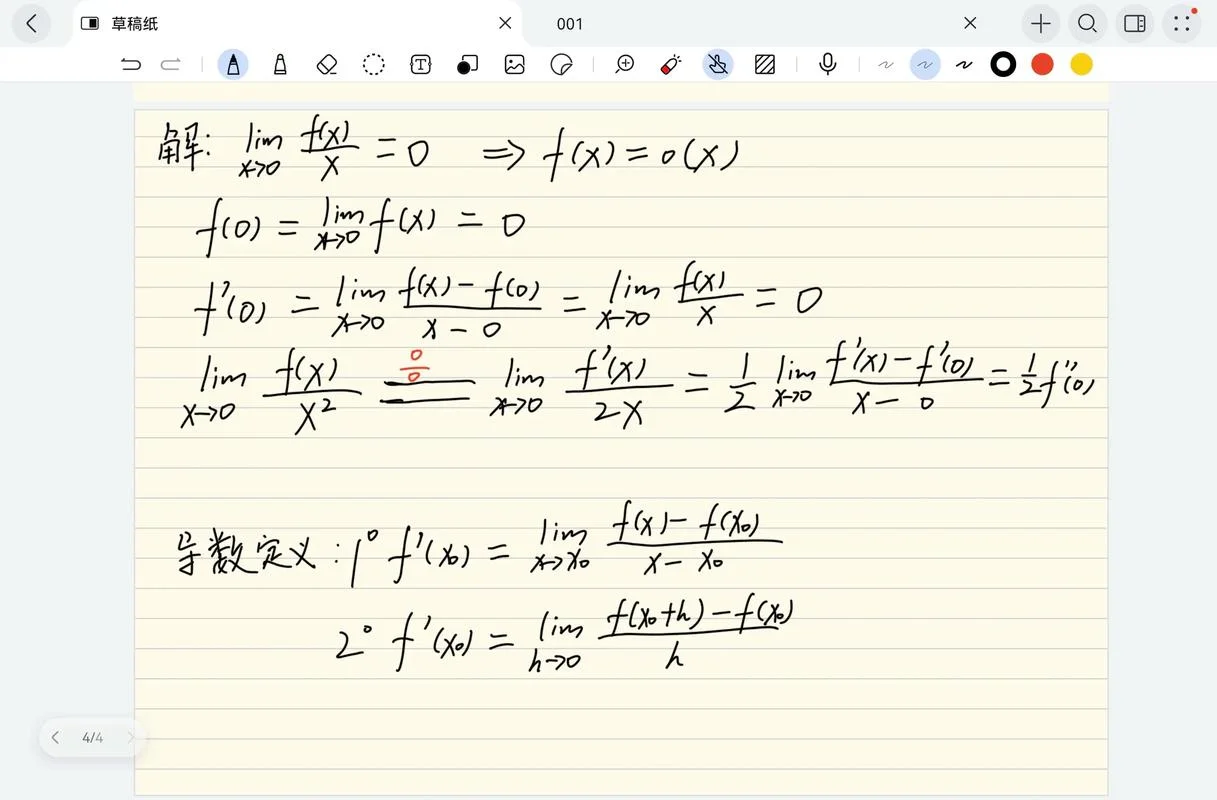 草稿纸
001
解: lim x→0 f(x)/x = 0 ⇒ f(x) = o(x)
f(0) = lim x→0 f(x) = 0
f'(0) = lim x→0 (f(x) - f(0))/(x - 0) = lim x→0 f(x)/x = 0
lim x→0 f(x)/x² =(0/0)= lim x→0 f'(x)/2x = 1/2 lim x→0 (f'(x) - f'(0))/(x - 0) = 1/2 f''(0)
导数定义: 1° f'(x₀) = lim x→x₀ (f(x) - f(x₀))/(x - x₀)
2° f'(x₀) = lim h→0 (f(x₀+h) - f(x₀))/h
4/4